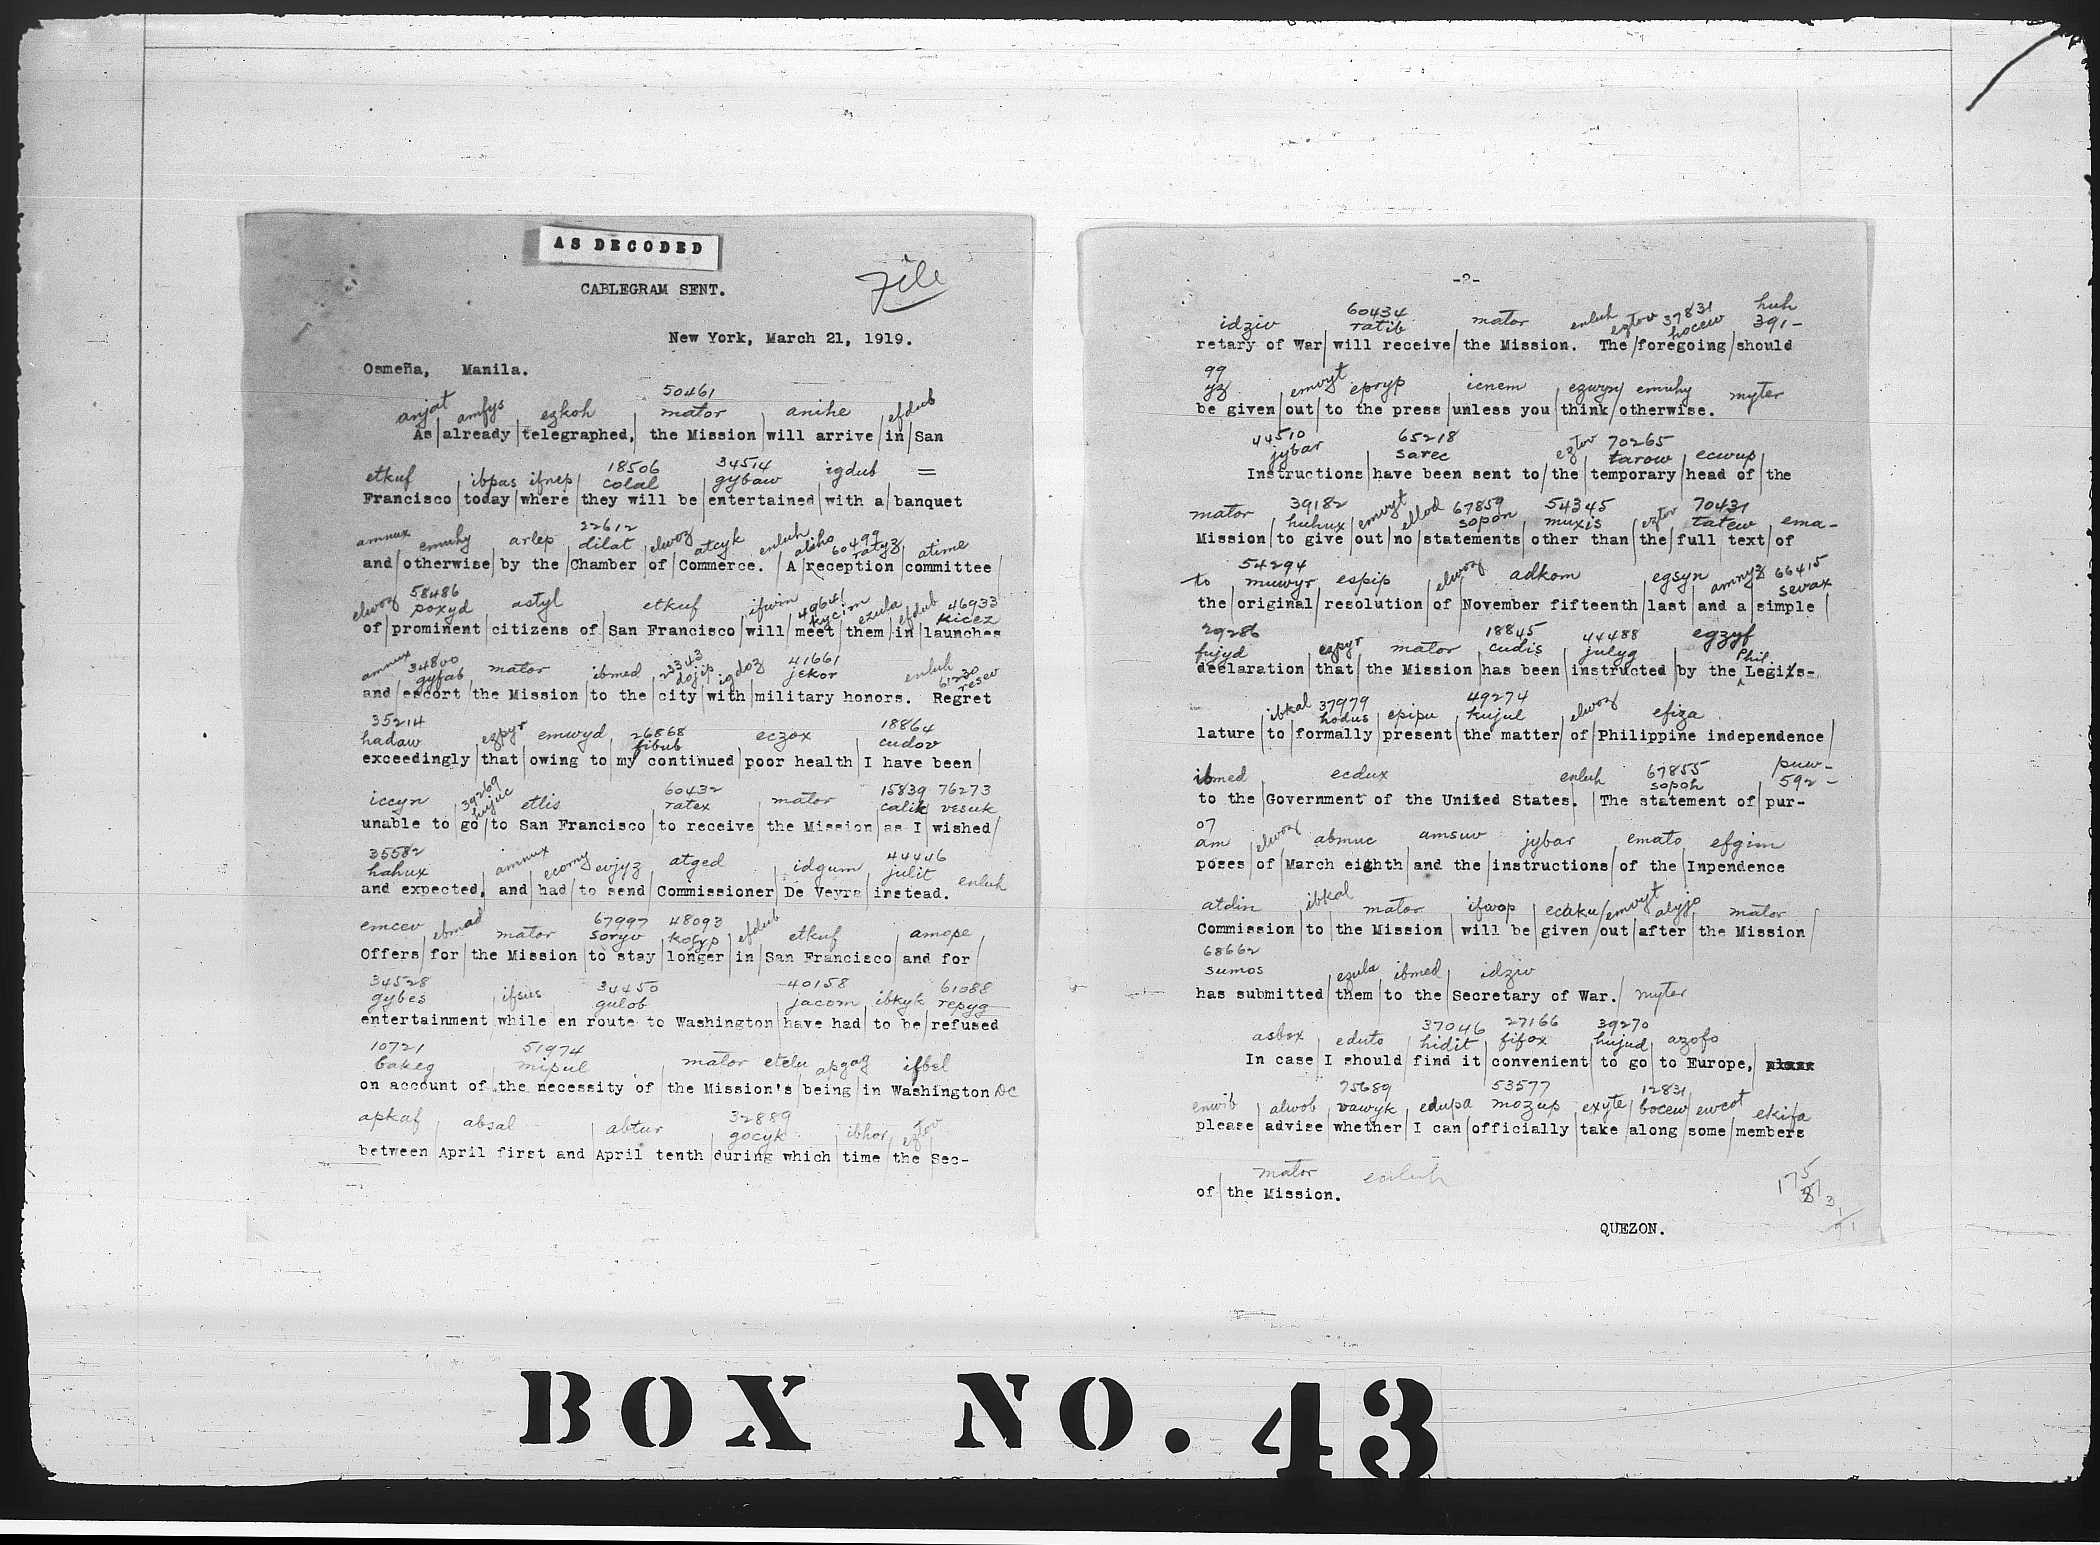 AS DECODED
File
CABLEGRAM SENT.
New York, March 21, 1919.
Osmeña, Manila.
50461
anjat amfys ezkoh mator anihe efdub
As already telegraphed, the Mission will arrive in San
18506 34514
etkuf ibpas ifnep colal gybaw igdub =
Francisco today where they will be entertained with a banquet
22612 60499
amnux emuhy arlep dilat elwoz atcyk enluh abiho ratyz atime
and otherwise by the Chamber of Commerce. A reception committee
58486 49641 46933
elwoz poxyd astyl etkuf ifwin kycim ezula efdub kicez
of prominent citizens of San Francisco will meet them in launches
34800 23343 41661 61230
amnux gyfab mator ibmed dojip igdoz jekor enluh resev
and escort the Mission to the city with military honors. Regret
35214 26868 18864
hadaw ezpyr emwyd fibub eczox cudov
exceedingly that owing to my continued poor health I have been
39269 60432 15839 76273
iccyn hujuc etlis ratex mator calik vesuk
unable to go to San Francisco to receive the Mission as I wished
35582 44446
hahux amnux ecomy ewjyz atged idgum julit enluh
and expected, and had to send Commissioner De Veyra instead.
67997 48093
emcev ebmad mator soryv kofyp efdub etkuf amope
Offers for the Mission to stay longer in San Francisco and for
34528 34450 40158 61088
gybes ifsus gulob jacom ibkyk repyg
entertainment while en route to Washington have had to be refused
10721 51974
bakeg mipul mator etelu apgog ifbel
on account of the necessity of the Mission's being in Washington DC
32889
apkaf absal abtur gocyk ibhor eztov
between April first and April tenth during which time the Sec-
-2-
60434 37831 huh
idziv ratib mator enluh eztov hocew 391-
retary of War will receive the Mission. The foregoing should
99
yz emvyt epryp icnem ezwyn emuhy myter
be given out to the press unless you think otherwise.
44510 65218 70265
jybar sarec eztov tarow ecwup
Instructions have been sent to the temporary head of the
39182 67859 54345 70431
mator huhux emvyt ellod sopon muxis eztov tatew ema-
Mission to give out no statements other than the full text of
54294 66415
to muwyr espip elwoz adkom egsyn amnyz sevax
the original resolution of November fifteenth last and a simple
29286 18845 44488
fujyd ezpyr mator cudis julyg egzyf
declaration that the Mission has been instructed by the Phil. Legis-
37979 49274
ibkal hodus epipu kujul elwoz efiza
lature to formally present the matter of Philippine independence
67855 puw-
ibmed ecdux enluh sopoh 592-
to the Government of the United States. The statement of pur-
07
am elwoz abmuc amsuv jybar emato efgim
poses of March eighth and the instructions of the Inpendence
atdin ibkal mator ifwop ecaku emvyt alyjo mator
Commission to the Mission will be given out after the Mission
68662
sumos ezula ibmed idziv
has submitted them to the Secretary of War. myter
37046 27166 39270
asbox eduto hidit fifox hujud azofo
In case I should find it convenient to go to Europe,
75689 53577 12831
enwib alwob vawyk edupa mozup exyte bocew ewcot ekifa
please advise whether I can officially take along some members
mator enluh
of the Mission.
QUEZON.
BOX NO. 43